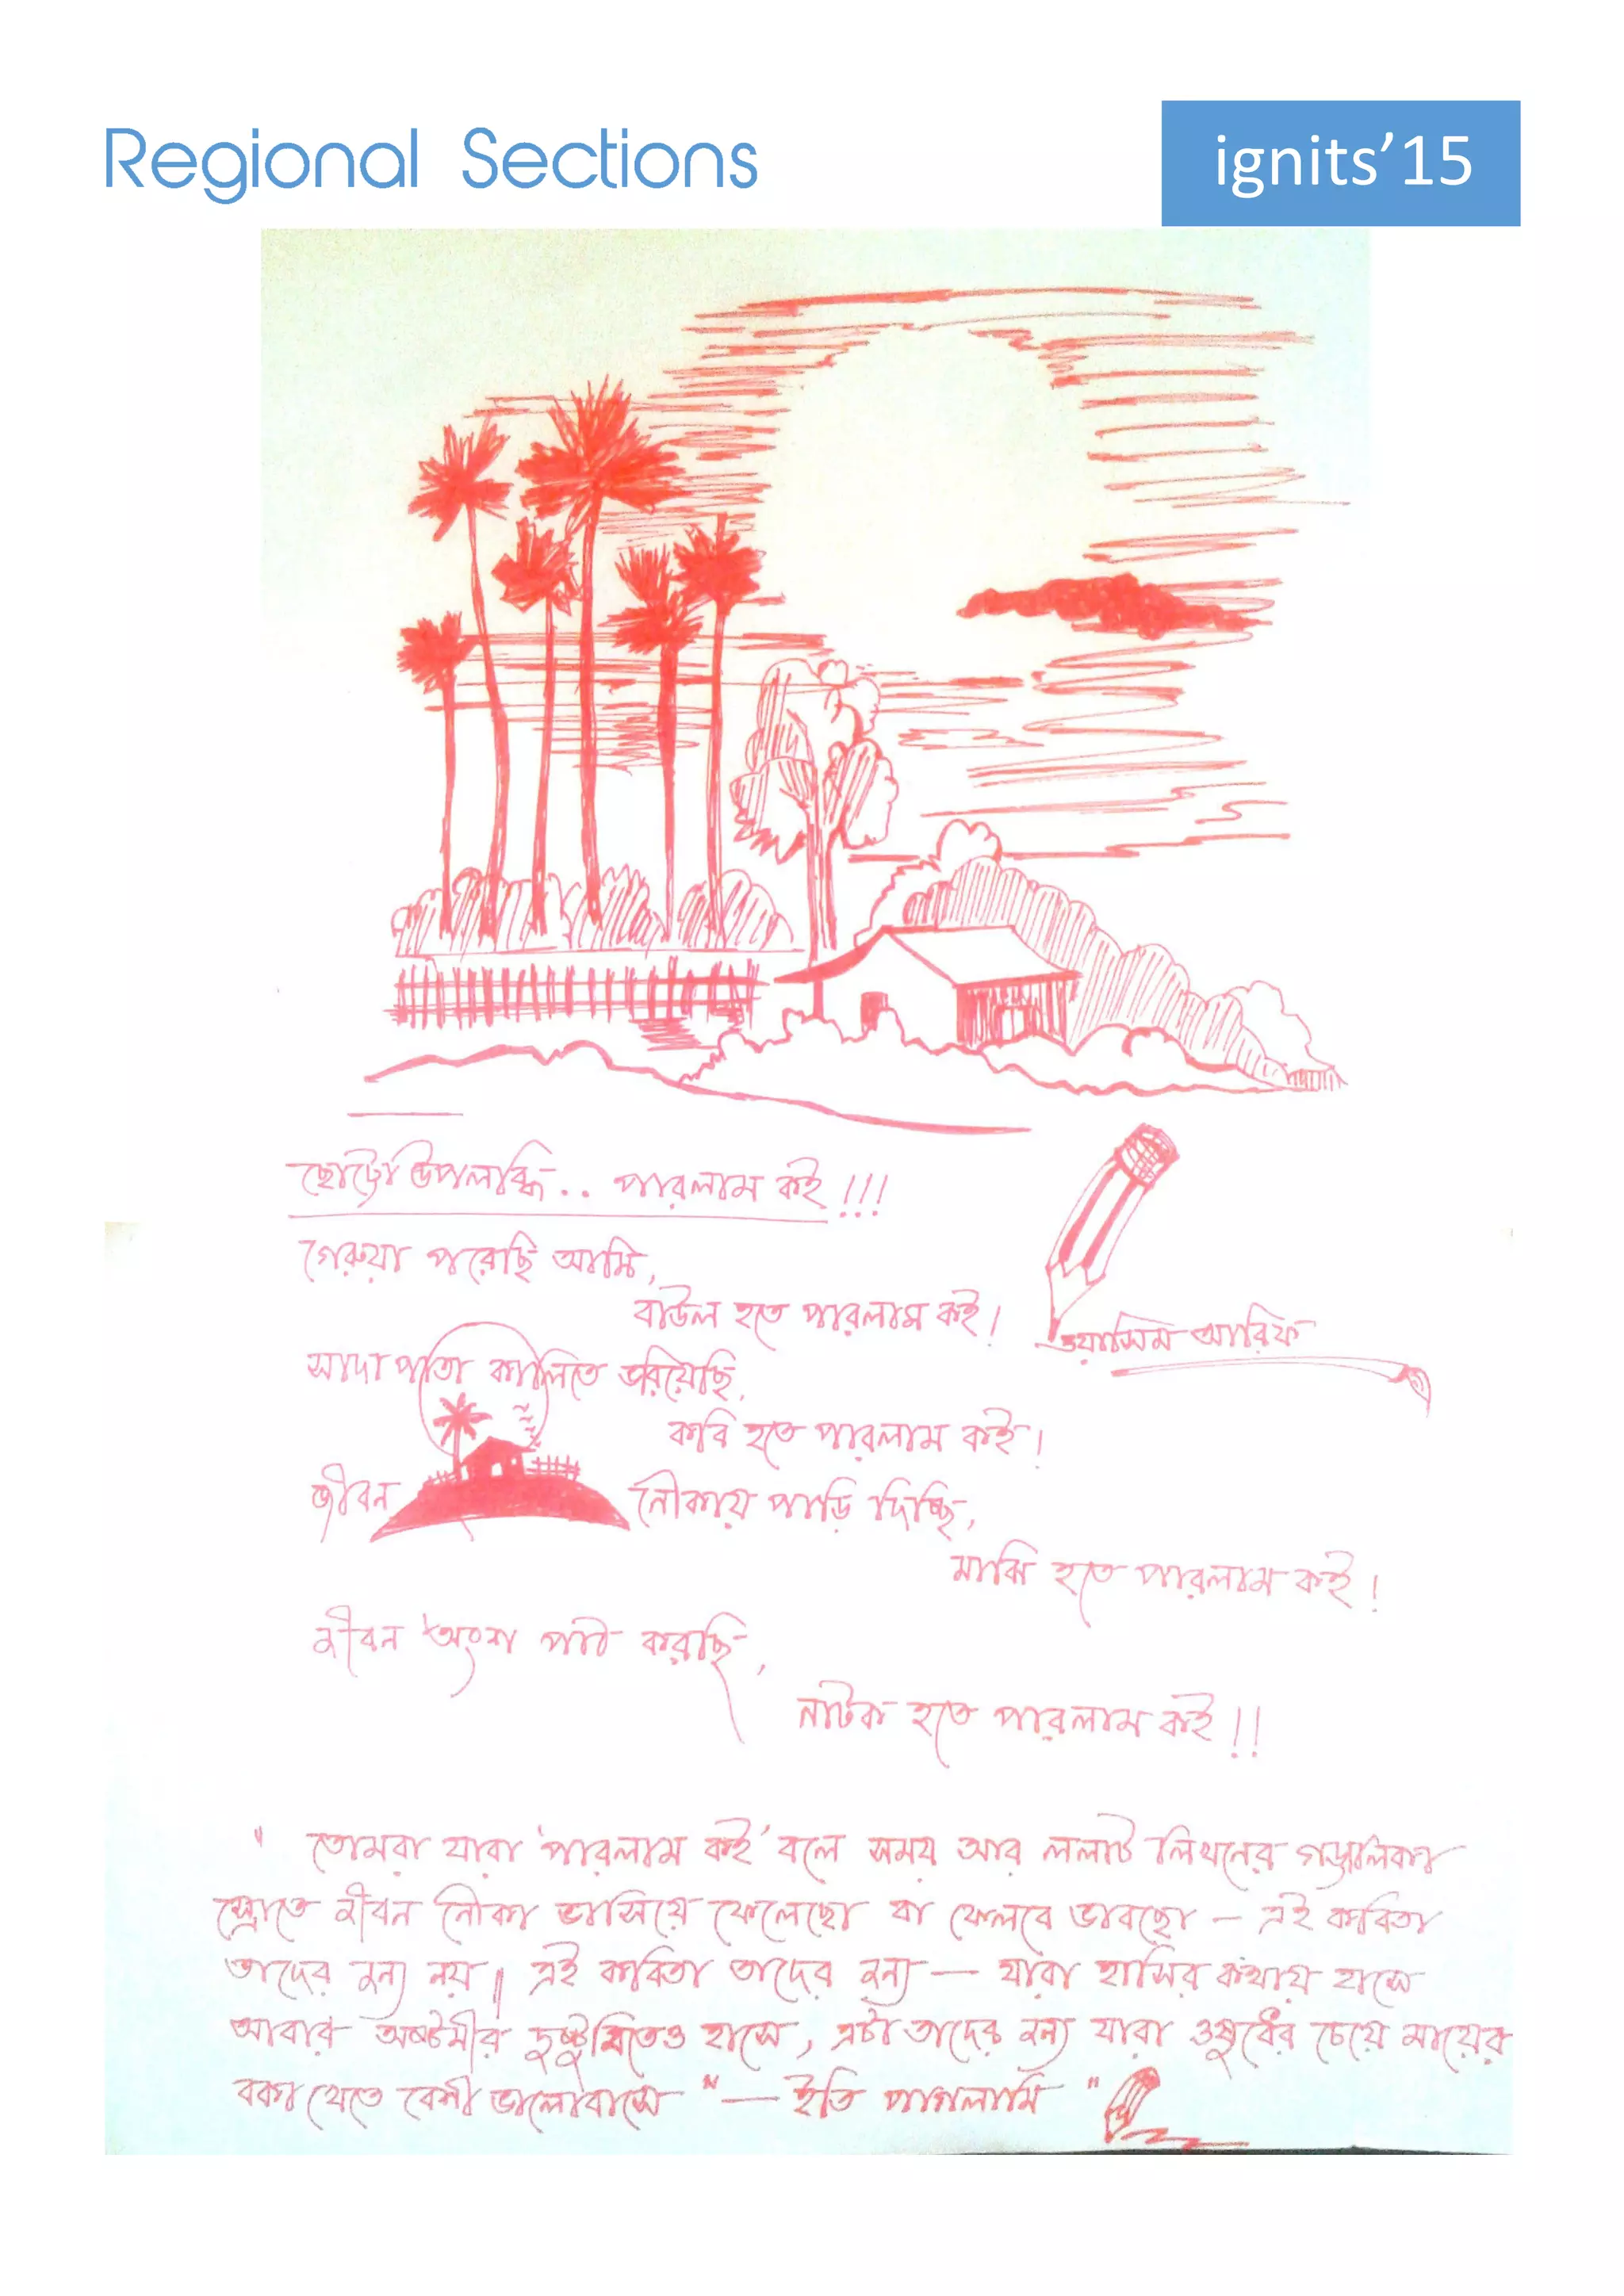 Regional Sections
ignits’15
ছোট্টো উপলব্ধি.. পারলাম কই !!!
গেরুয়া পরেছি আমি,
বাউল হতে পারলাম কই !
ওয়াসিম আরিফ
সাদা পাতা কালিতে ভরিয়েছি,
কবি হতে পারলাম কই !
জীবন নৌকায় পাড়ি দিচ্ছি,
মাঝি হতে পারলাম কই !
জীবন অংশ পাঠ করছি,
নাটক হতে পারলাম কই !!
" তোমরা যারা 'পারলাম কই' বলে সময় আর ললাট লিখনের গড্ডালিকা
স্রোতে জীবন নৌকা ভাসিয়ে ফেলেছো বা ফেলবে ভাবছো – এই কবিতা
তাদের জন্য নয়॥ এই কবিতা তাদের জন্য — যারা হাসির কথায় হাসে
আবার অষ্টমীর দুষ্টুমিতেও হাসে, এটা তাদের জন্য যারা ওষুধের চেয়ে মায়ের
বকা খেতে বেশী ভালোবাসে " — ইতি পাগলামি "